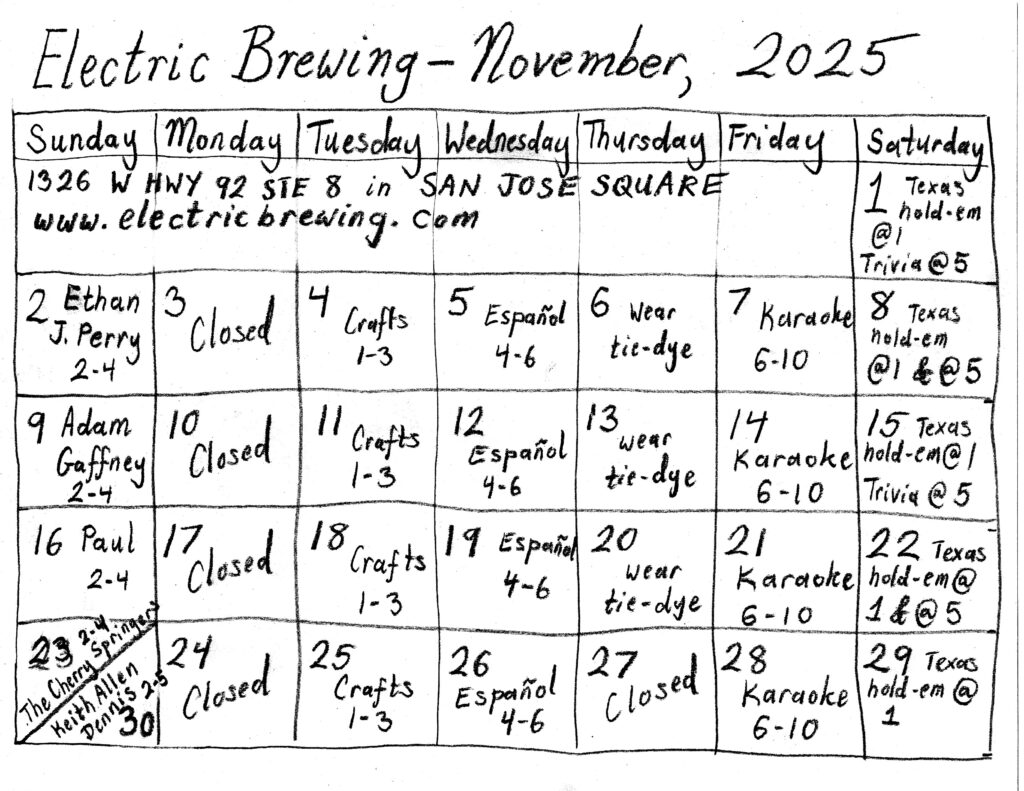 Electric Brewing - November, 2025
Sunday Monday Tuesday Wednesday Thursday Friday Saturday
1326 W HWY 92 STE 8 in SAN JOSE SQUARE
www.electricbrewing.com
1 Texas
hold-em
@1
Trivia @ 5
2 Ethan
J. Perry
2-4
3
Closed
4
Crafts
1-3
5
Español
4-6
6 Wear
tie-dye
7 Karaoke
6-10
8 Texas
hold-em
@1 & @ 5
9 Adam
Gaffney
2-4
10
Closed
11
Crafts
1-3
12
Español
4-6
13
wear
tie-dye
14
Karaoke
6-10
15 Texas
hold-em@1
Trivia @ 5
16 Paul
2-4
17
Closed
18
Crafts
1-3
19 Español
4-6
20
wear
tie-dye
21
Karaoke
6-10
22 Texas
hold-em@
1 & @ 5
23 2-4
The Cherry Springers
Keith Allen
Dennis 2-5
30
24
Closed
25
Crafts
1-3
26
Español
4-6
27
Closed
28
Karaoke
6-10
29 Texas
hold-em @
1